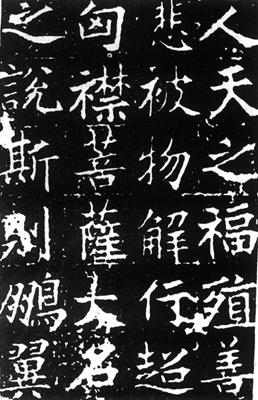 人天之福殖善
悲被物解行超
匈襟菩薩大名
之說斯則鵬翼